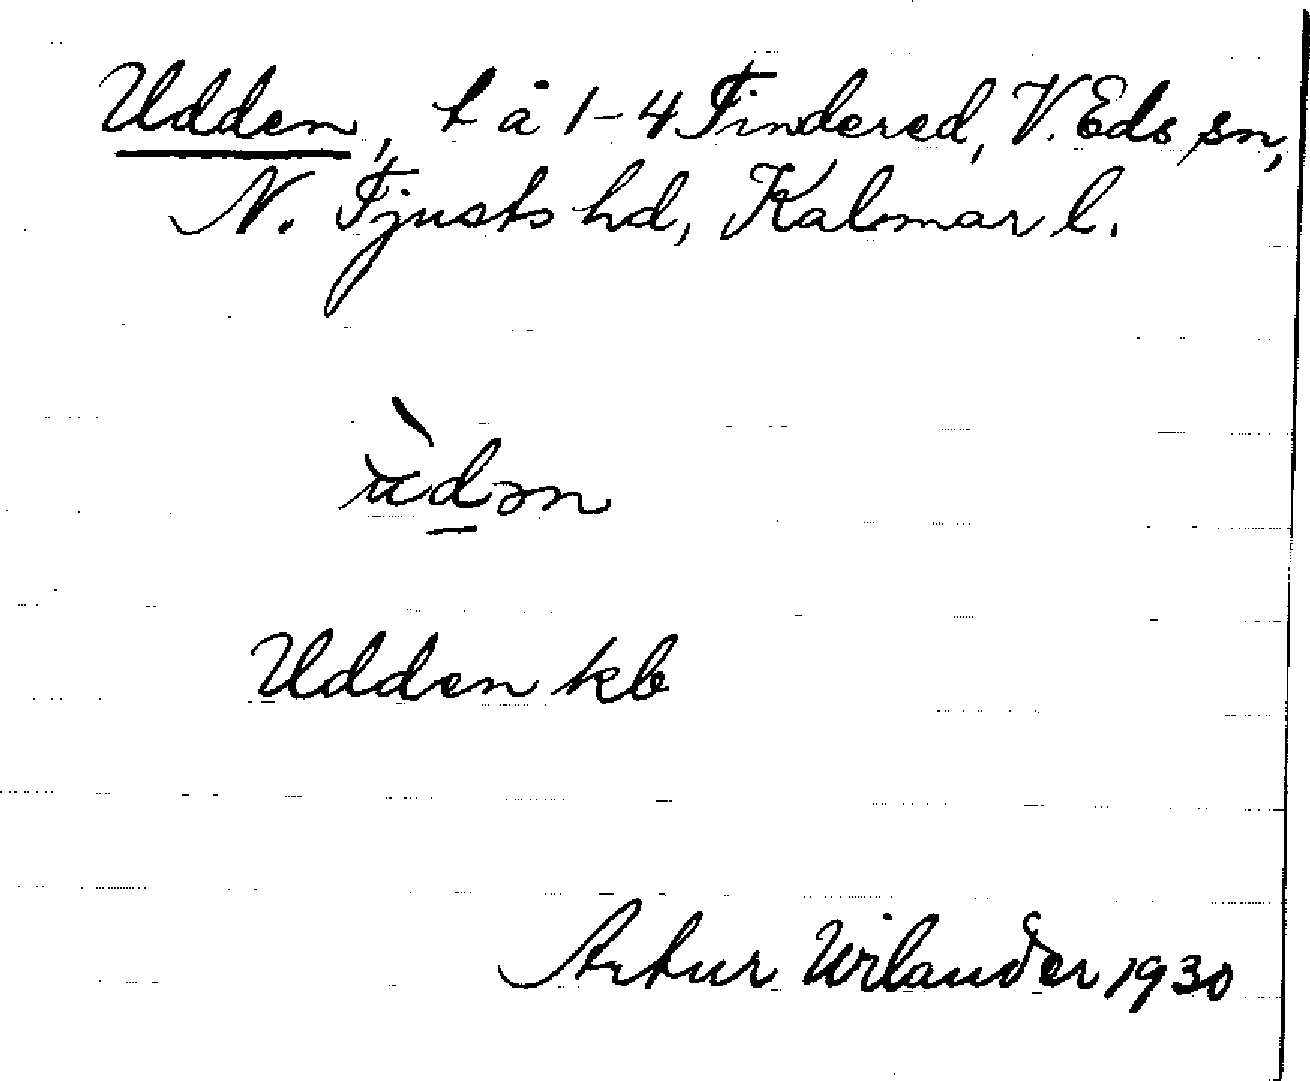 Udden, t å 1-4 Tindered, V. Eds sn,
N. Tjusts hd, Kalmar l.
ùdən
Udden kb
Artur Wilander 1930